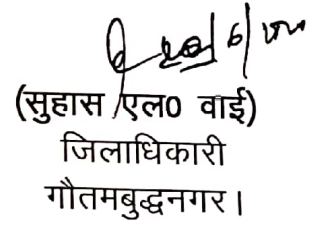 (सुहास एल0 वाई)
जिलाधिकारी
गौतमबुद्धनगर।